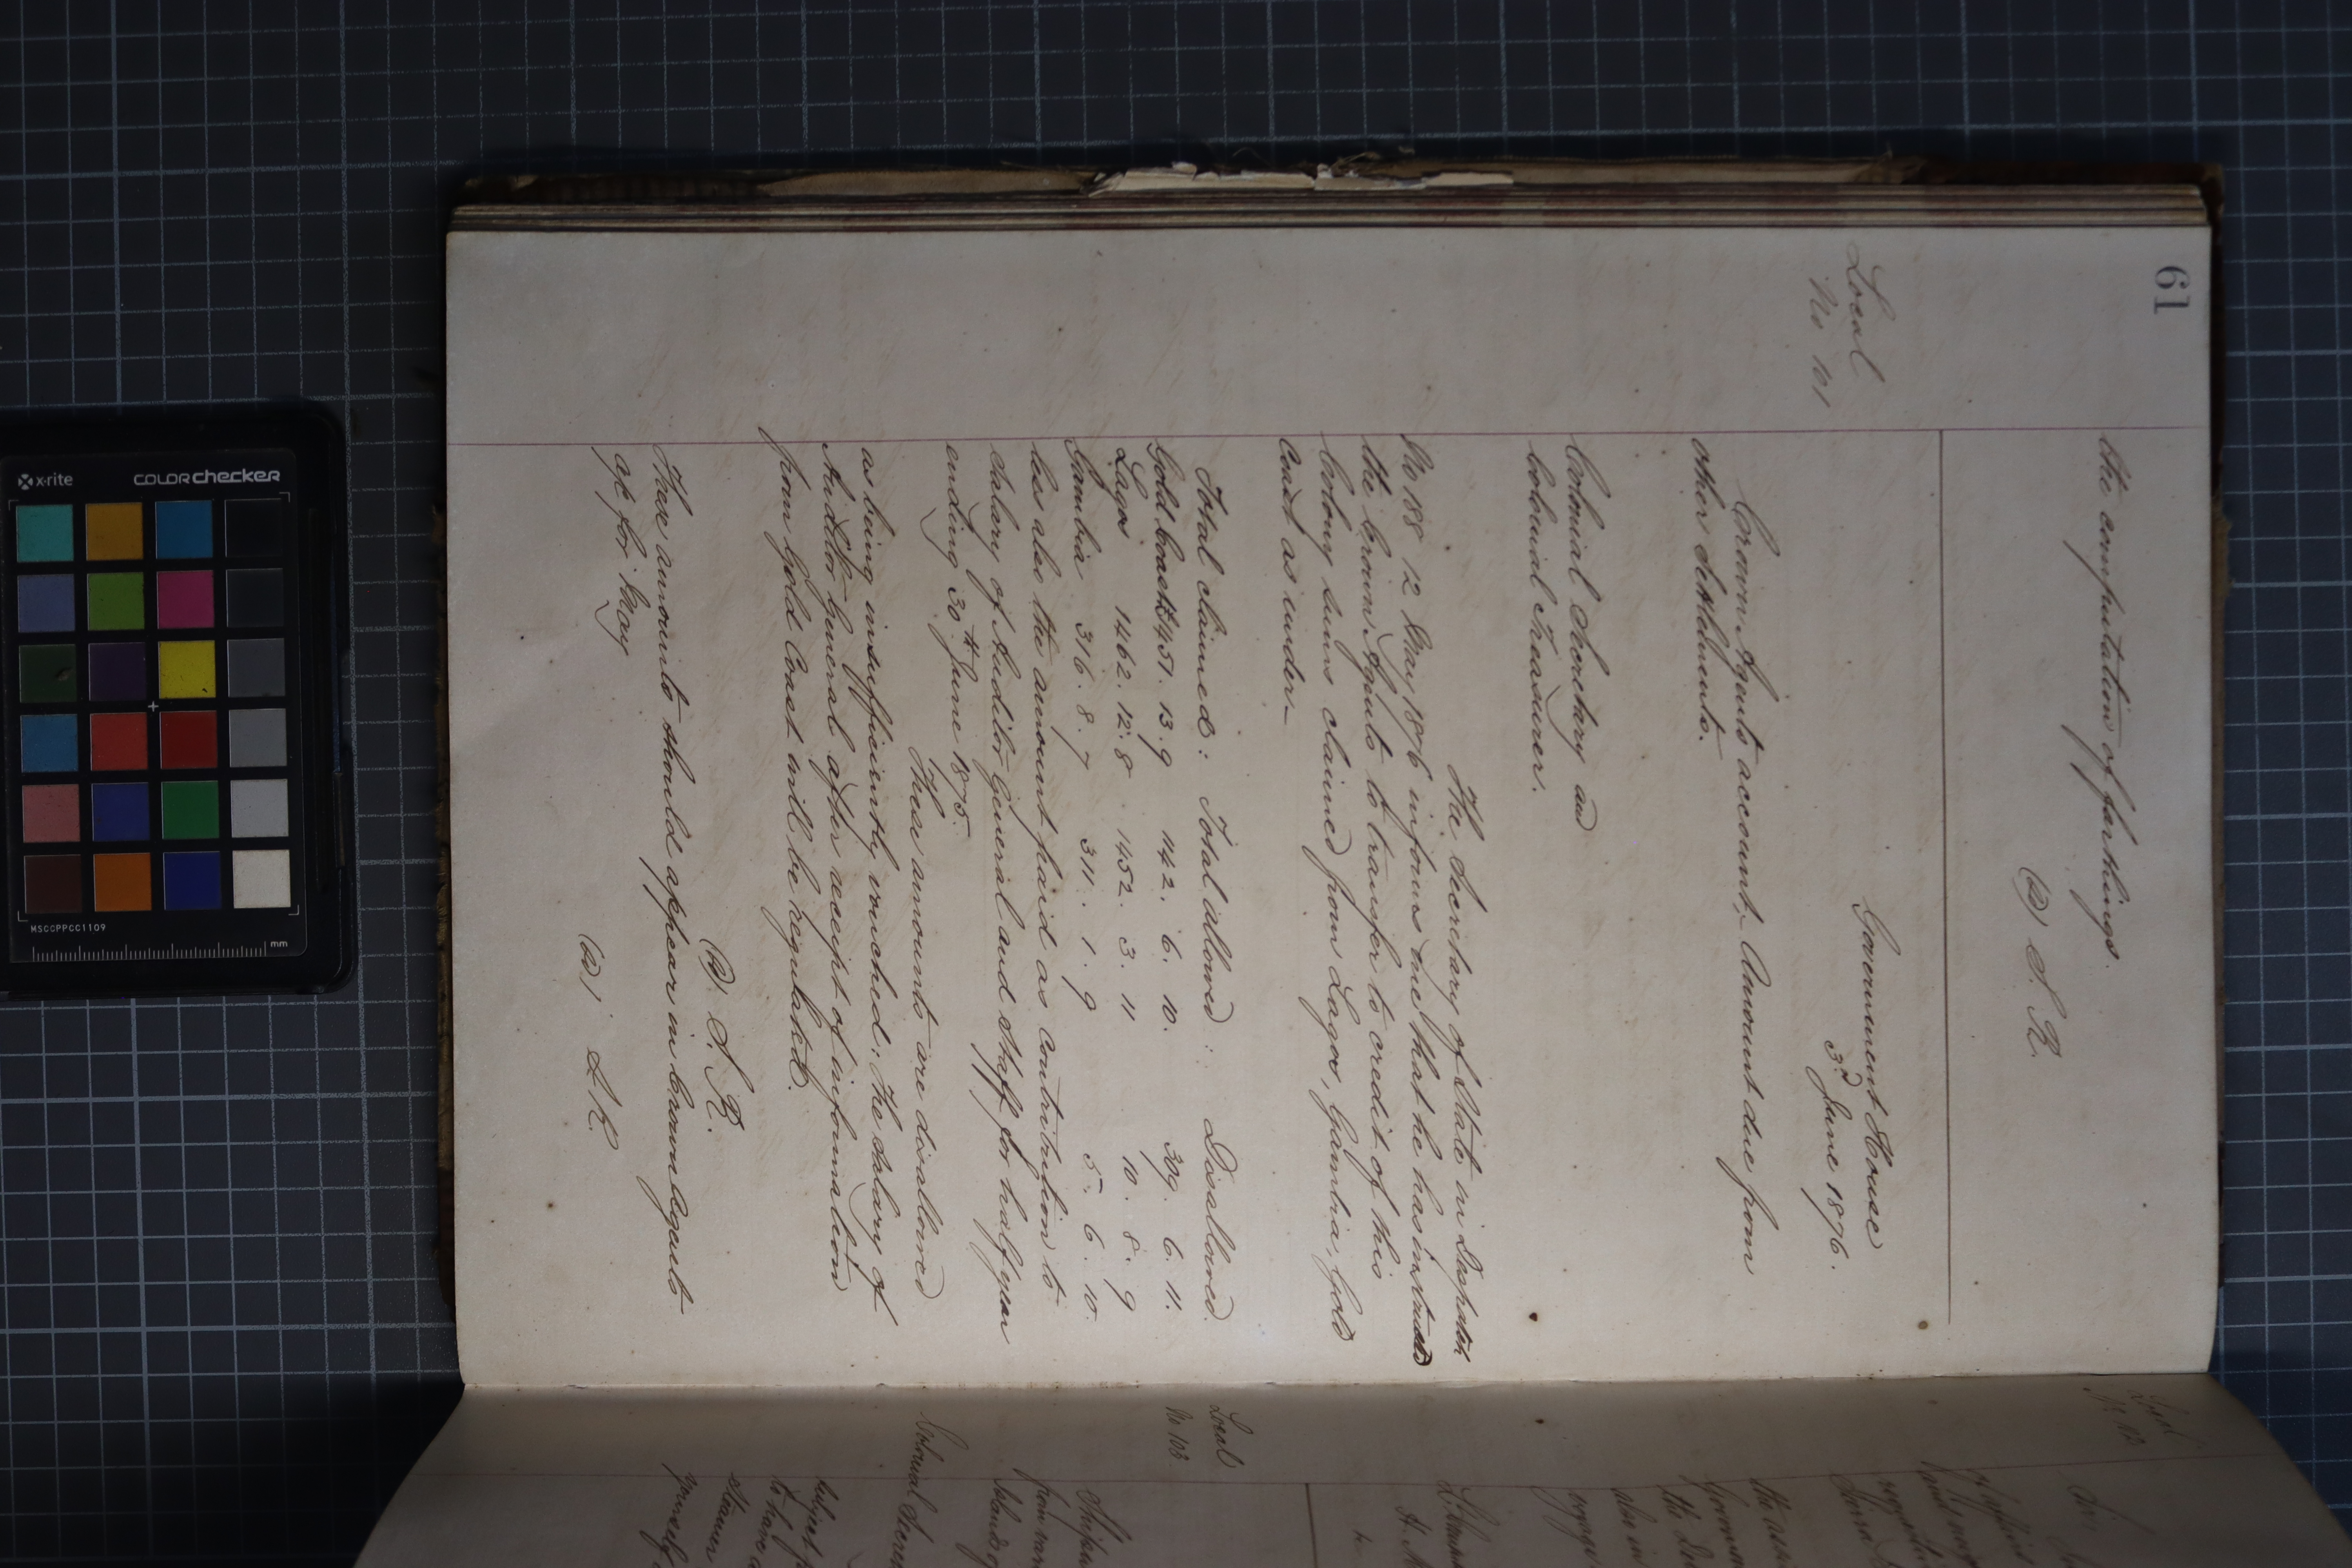 61
the computation of farthings.
(s) S. R.
Local
No 101
Government House
3rd June 1876.
Crown Agents account, Amount due from
other settlements.
Colonial Secretary and
Colonial Treasurer.
The Secretary of State in Despatch
No 188 12 May 1876 informs me that he has instructed
the Crown Agents to transfer to credit of this
Colony sums claimed from Lagos, Gambia, Gold
Coast as under_
Total claimed: Total allowed: Disallowed.
Gold Coast £451. 13. 9 142. 6. 10. 309. 6. 11.
Lagos 1462. 12. 8 1452. 3. 11 10. 8. 9
Gambia 316. 8. 7 311. 1. 9 5. 6. 10.
less also the amount paid as contribution to
salary of Auditor General and Staff for half year
ending 30th June 1875.
These amounts are disallowed
as being insufficiently vouched: the salary of
Auditor General after receipt of information
from Gold Coast will be regulated.
(s) S. R.
These amounts should appear in Crown Agents
a/c for May
(s) S. R.
Local
No 102
Sir
the
also in
Local
No 103
Shipm
from
Islands of
Colonial Secre
subject
to have a
Steamer
x-rite
colorchecker
MSCCPPCC1109
mm